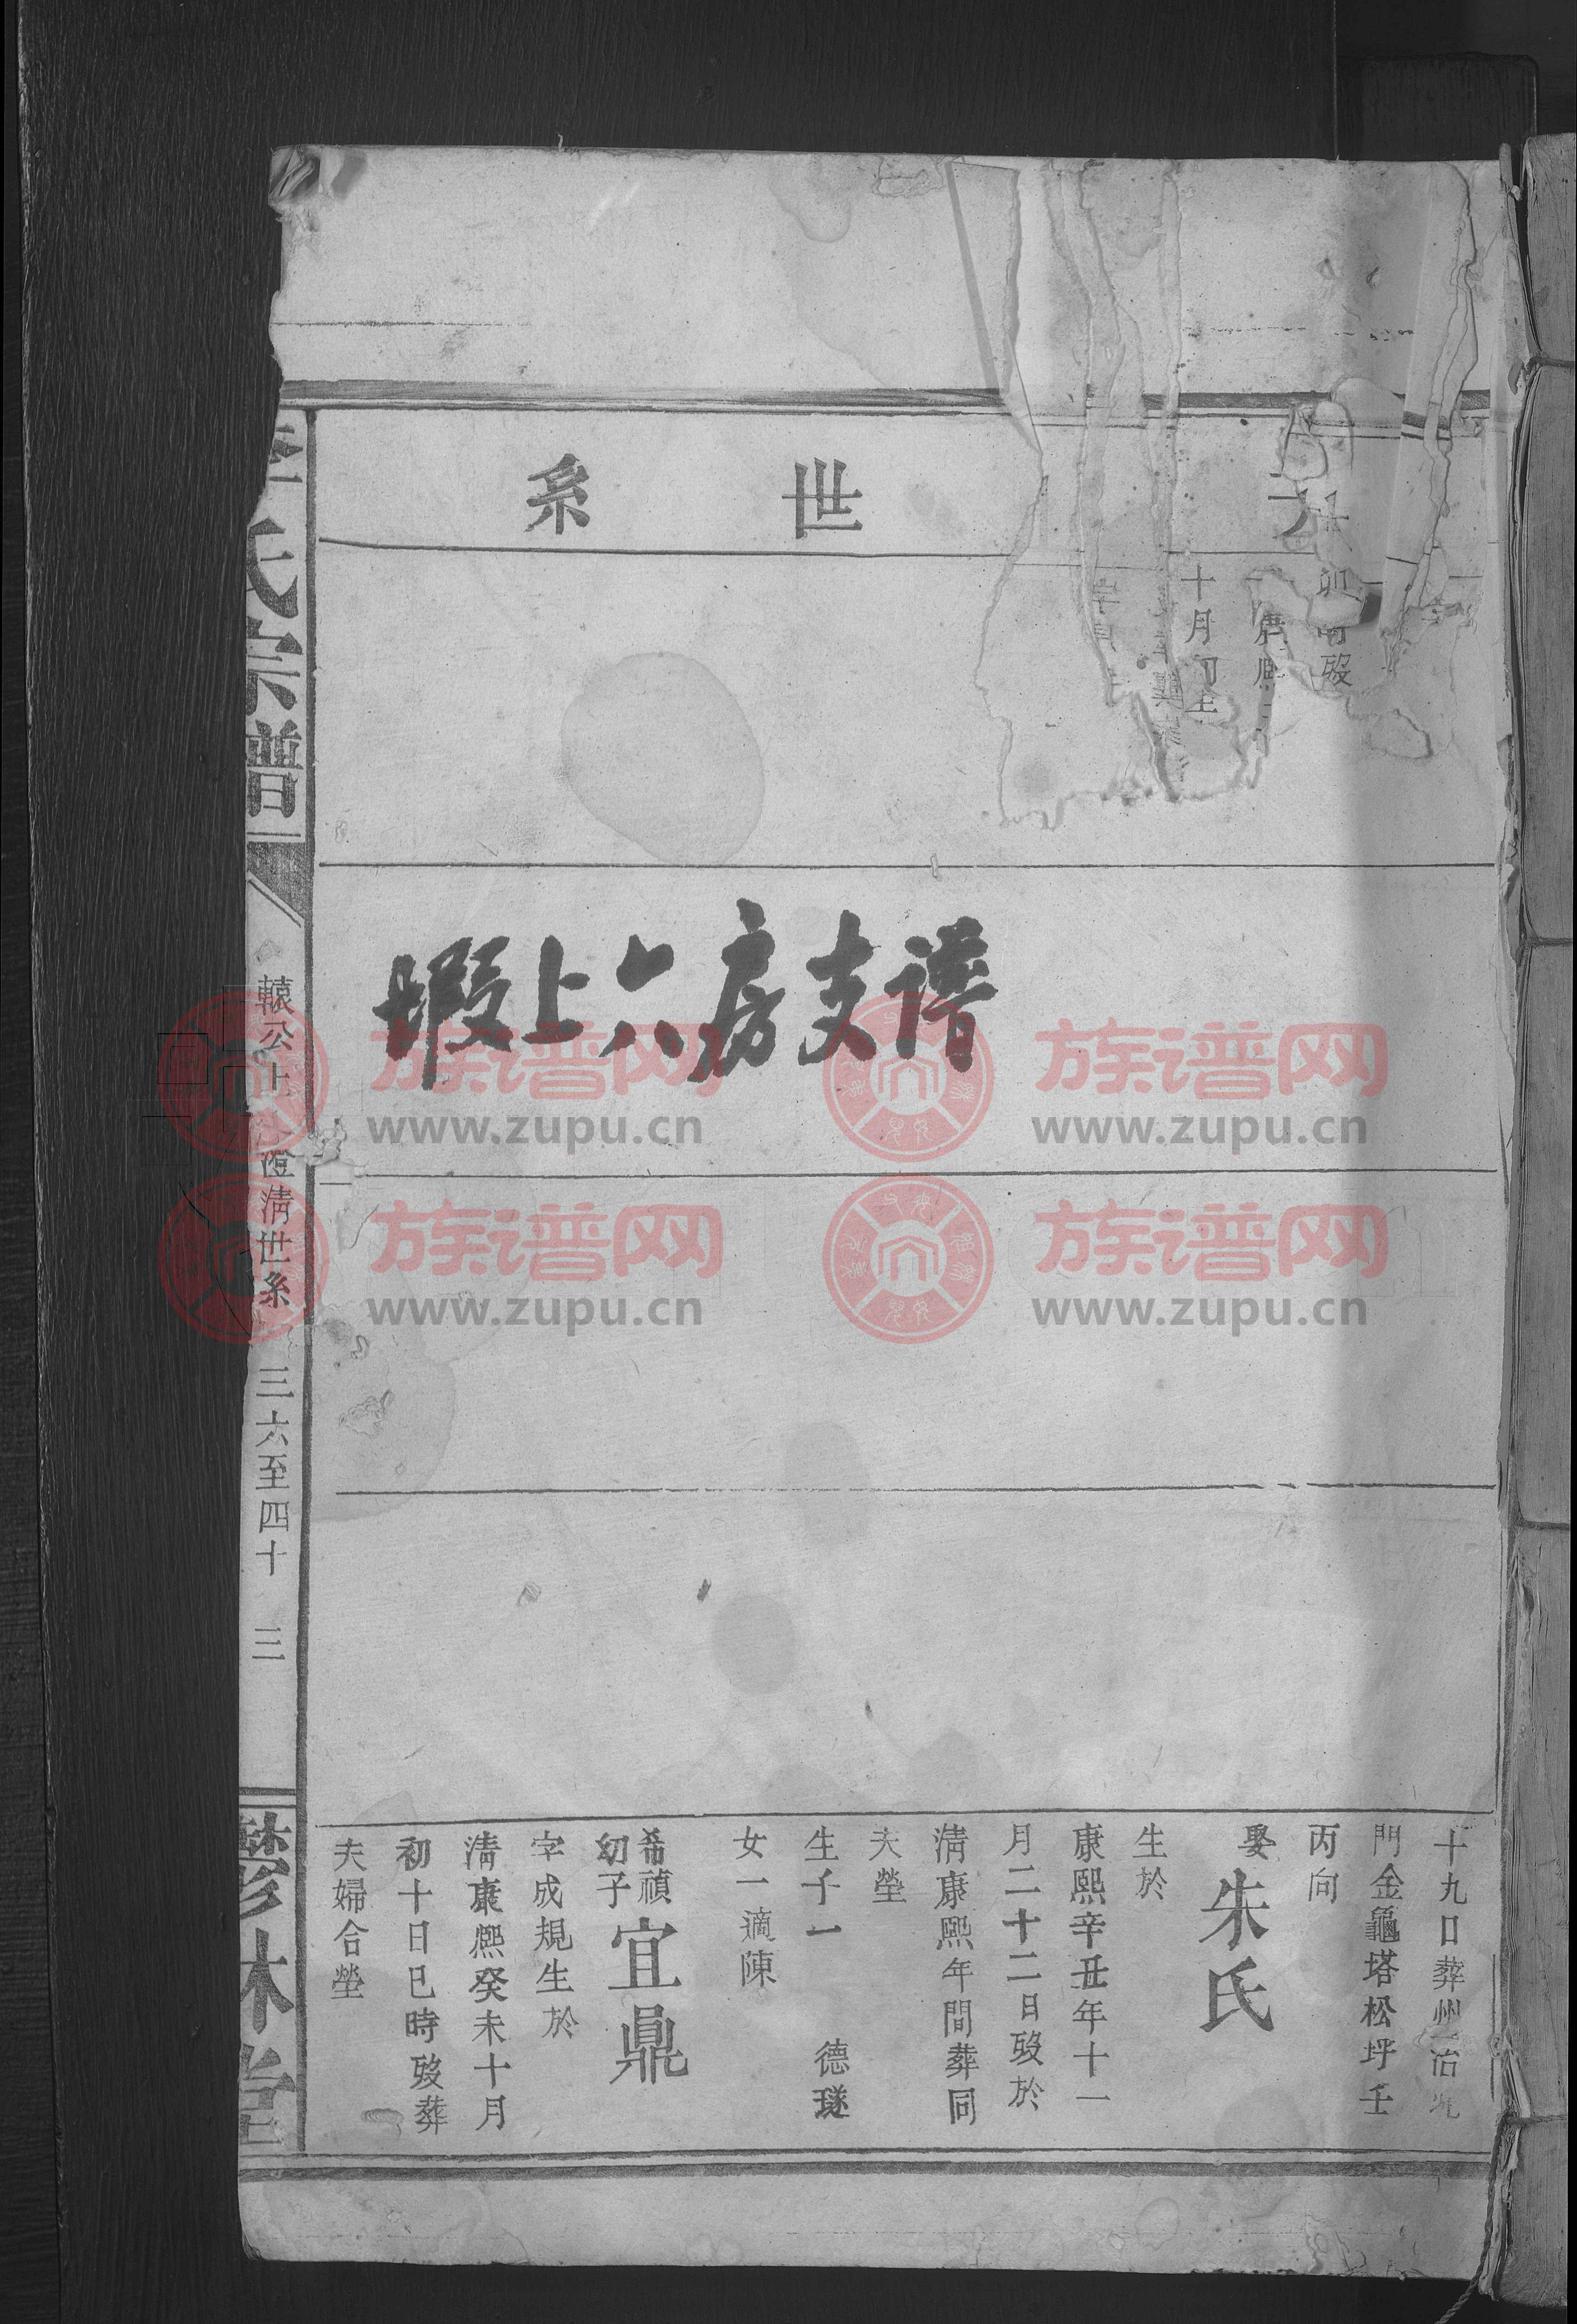 世
系
十月初
歿
上六房支谱
十九日葬州治
門金龜塔松坪壬
丙向
娶朱氏
生於
康熙辛丑年十一
月二十二日歿於
清康熙年間葬同
夫塋
生子一 德璲
女一適陳
希禎
幼子
宜鼎
字成規生於
清康熙癸未十月
初十日巳時歿葬
夫婦合塋
氏宗譜
轅公上
澄清世系
三六至四十
三
林堂
族谱网
www.zupu.cn
族谱网
www.zupu.cn
族谱网
www.zupu.cn
族谱网
www.zupu.cn